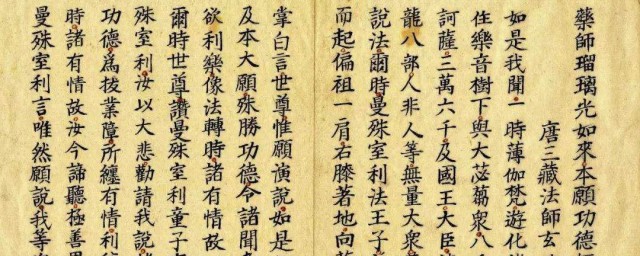 藥師瑠璃光如來本願功德
唐三藏法師玄
如是我聞一時薄伽梵遊化
住樂音樹下與大苾蒭衆八
訶薩三萬六千及國王大臣
龍八部人非人等無量大衆
說法爾時曼殊室利法王子
而起偏袒一肩右膝著地向
掌白言世尊惟願演說如是
及本大願殊勝功德令諸聞
欲利樂像法轉時諸有情故
爾時世尊讚曼殊室利童子
殊室利汝以大悲勸請我說
功德為拔業障所纏有情利
時諸有情故汝今諦聽極善思
曼殊室利言唯然願說我等